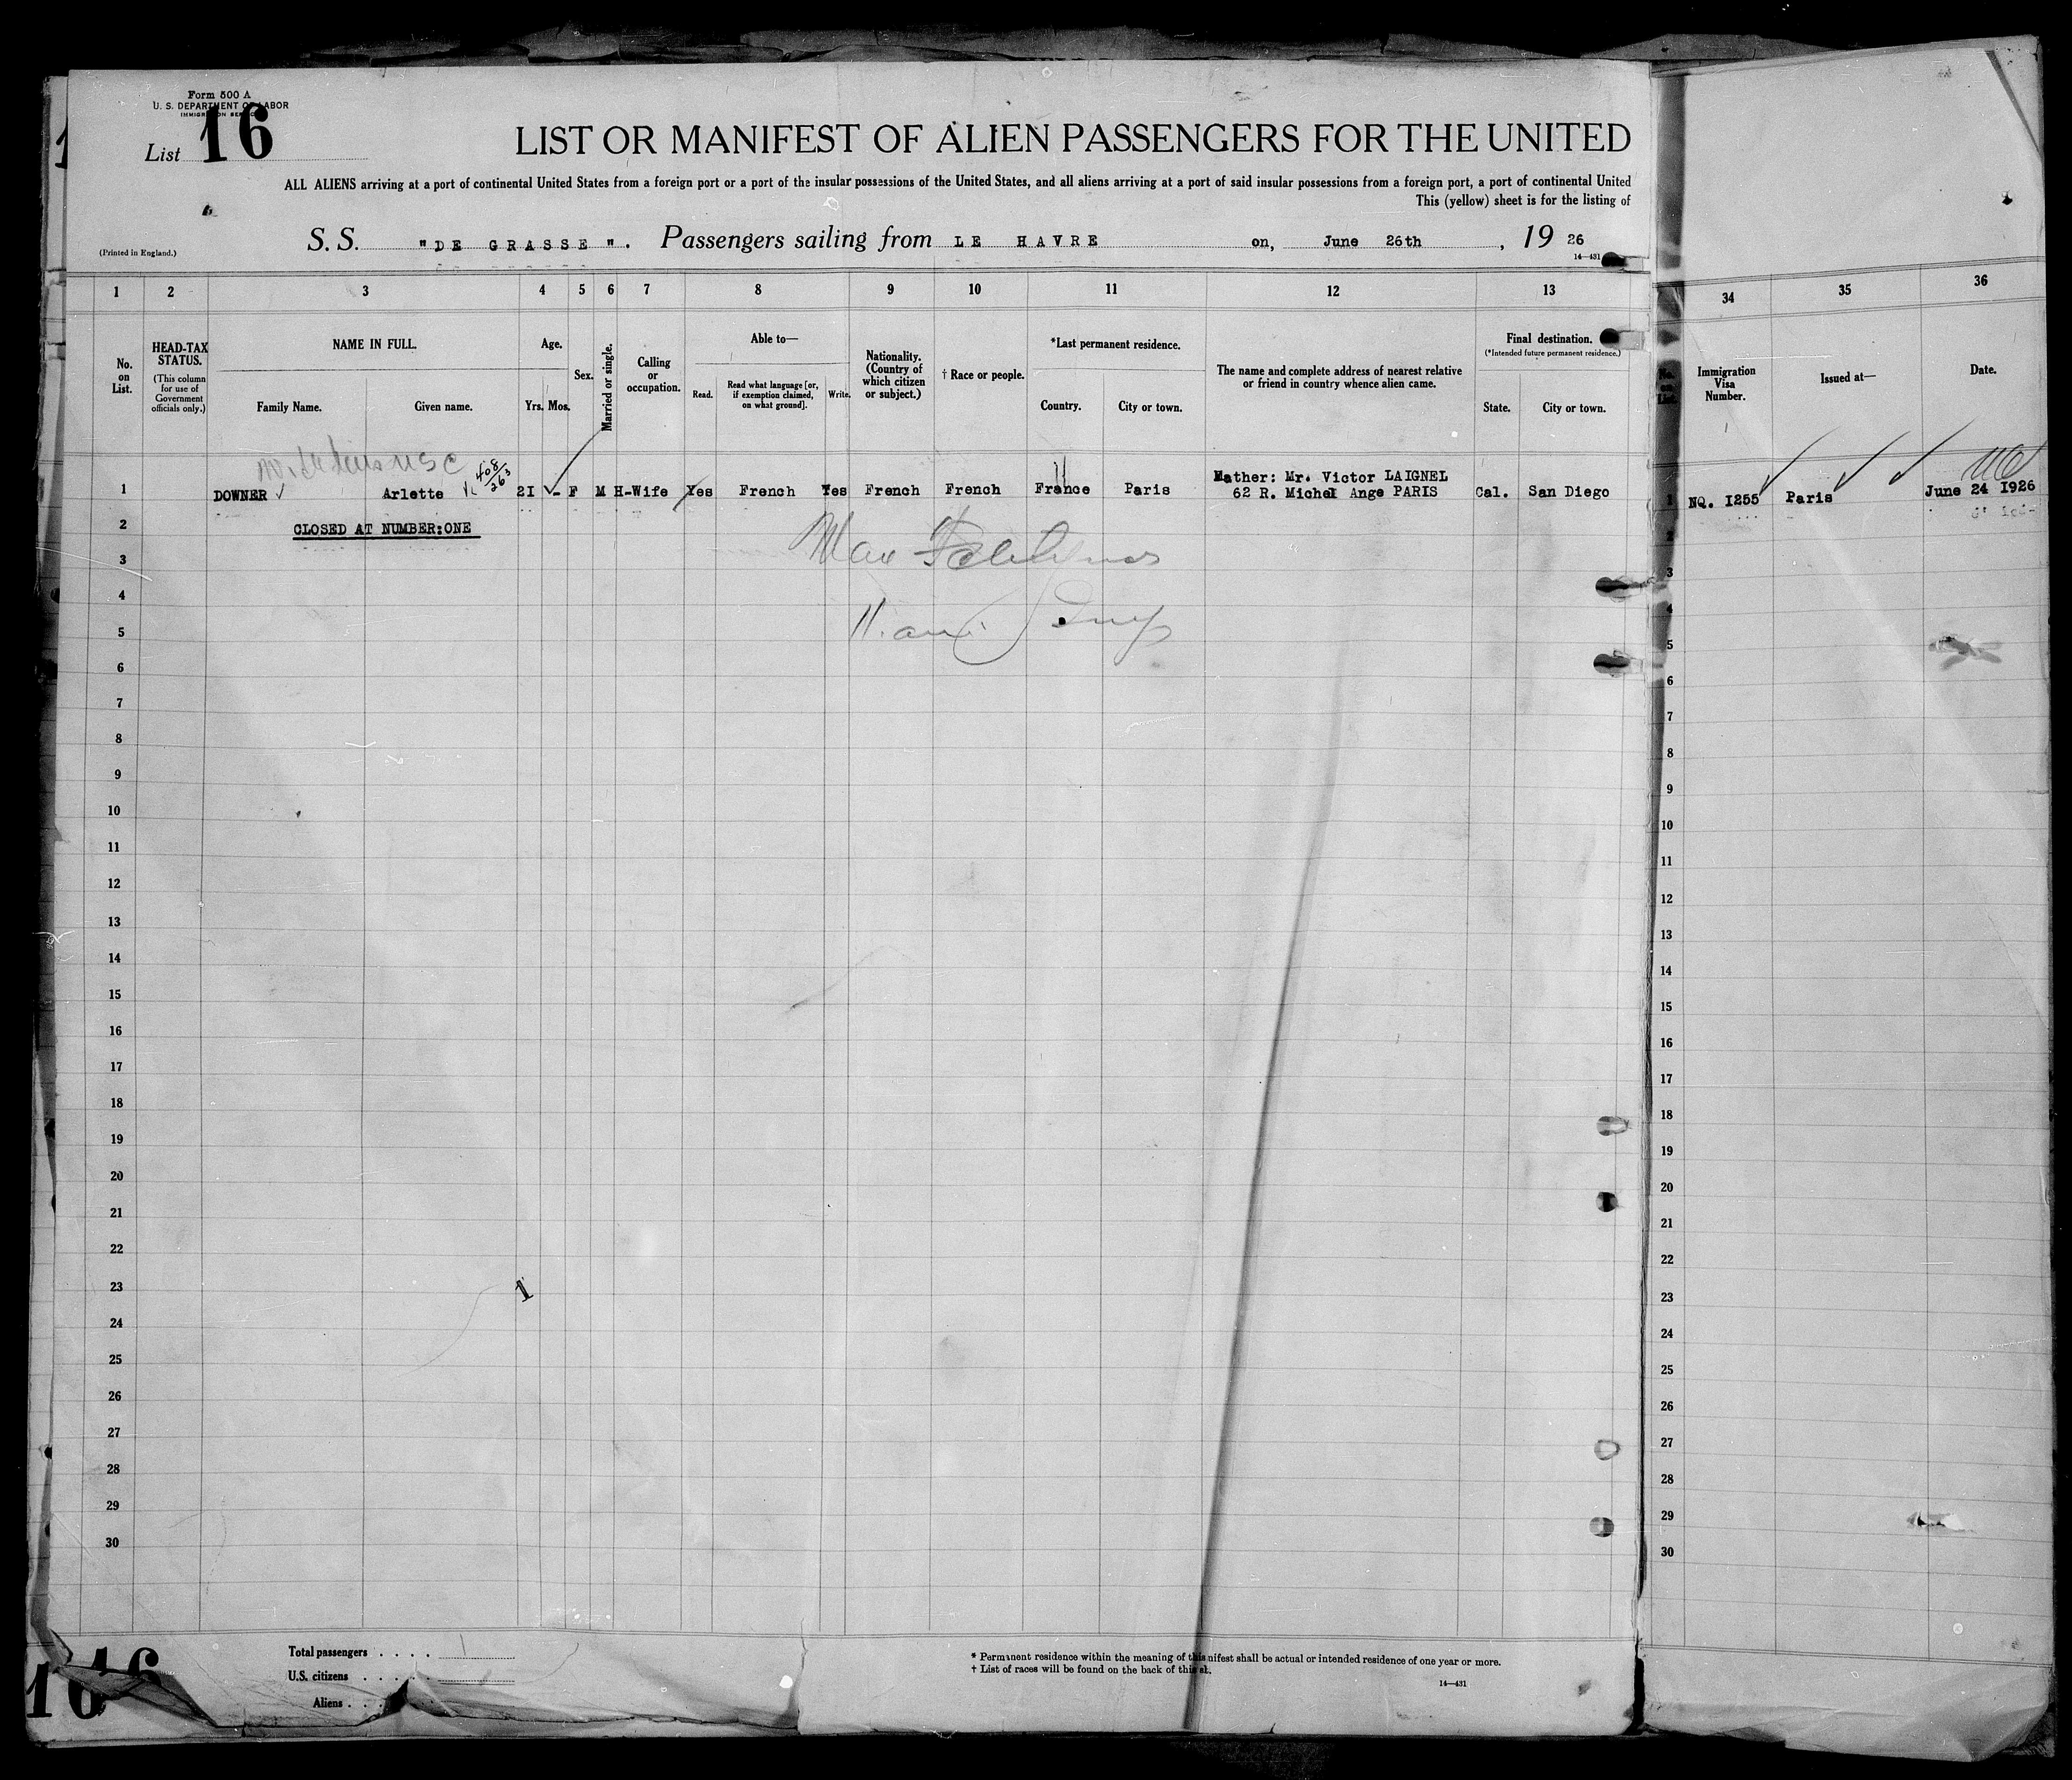 Form 500 A
U. S. DEPARTMENT OF LABOR
IMMIGRATION SERVICE
List 16
LIST OR MANIFEST OF ALIEN PASSENGERS FOR THE UNITED
ALL ALIENS arriving at a port of continental United States from a foreign port or a port of the insular possessions of the United States, and all aliens arriving at a port of said insular possessions from a foreign port, a port of continental United
This (yellow) sheet is for the listing of
S. S. "DE GRASSE". Passengers sailing from LE HAVRE on, June 26th, 19 26
(Printed in England.)
14—431
1 2 3 4 5 6 7 8 9 10 11 12 13 34 35 36
No. on List.
HEAD-TAX STATUS.
(This column for use of Government officials only.)
NAME IN FULL.
Family Name. Given name.
Age.
Yrs. Mos.
Sex.
Married or single.
Calling or occupation.
Able to—
Read. Read what language [or, if exemption claimed, on what ground]. Write.
Nationality. (Country of which citizen or subject.)
† Race or people.
*Last permanent residence.
Country. City or town.
The name and complete address of nearest relative or friend in country whence alien came.
Final destination.
(*Intended future permanent residence.)
State. City or town.
No. on List.
Immigration Visa Number.
Issued at—
Date.
408/263
1 DOWNER Arlette 2I - F M H-Wife Yes French Yes French French France Paris Mather: Mr. Victor LAIGNEL
62 R. Michel Ange PARIS Cal. San Diego 1 NQ. I255 Paris June 24 I926
2 CLOSED AT NUMBER:ONE 2
3 3
4 4
5 5
6 6
7 7
8 8
9 9
10 10
11 11
12 12
13 13
14 14
15 15
16 16
17 17
18 18
19 19
20 20
21 21
22 22
23 1 23
24 24
25 25
26 26
27 27
28 28
29 29
30 30
Total passengers . . . . 1
U.S. citizens . . . .
Aliens . . .
16 16
* Permanent residence within the meaning of this nifest shall be actual or intended residence of one year or more.
† List of races will be found on the back of this
14—431